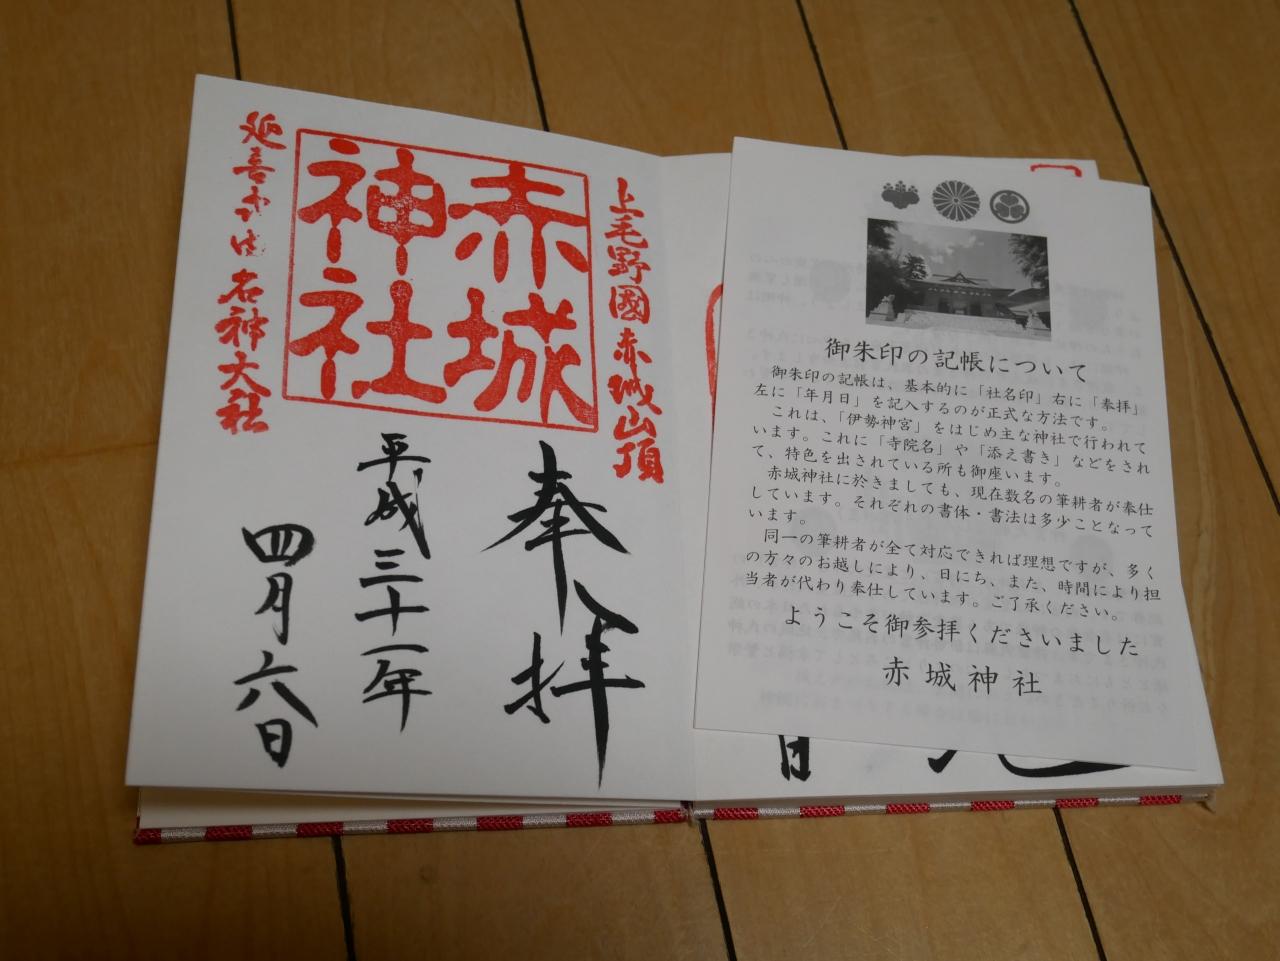 上毛野國赤城山頂
赤城
神社
延喜式内名神大社
奉拝
平成三十一年
四月六日
御朱印の記帳について
御朱印の記帳は、基本的に「社名印」右に「奉拝」
左に「年月日」を記入するのが正式な方法です。
これは、「伊勢神宮」をはじめ主な神社で行われて
います。これに「寺院名」や「添え書き」などをされ
て、特色を出されている所も御座います。
赤城神社に於きましても、現在数名の筆耕者が奉仕
しています。それぞれの書体・書法は多少ことなって
います。
同一の筆耕者が全て対応できれば理想ですが、多く
の方々のお越しにより、日にち、また、時間により担
当者が代わり奉仕しています。ご了承ください。
ようこそ御参拝くださいました
赤城神社